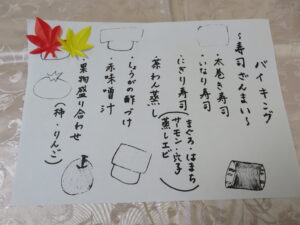 バイキング
～寿司ざんまい～
・太巻き寿司
・いなり寿司
・にぎり寿司
(まぐろ・はまち
サーモン・穴子
蒸しエビ)
・茶わん蒸し
・しょうがの酢づけ
・赤味噌汁
・果物盛り合わせ
(柿・りんご)